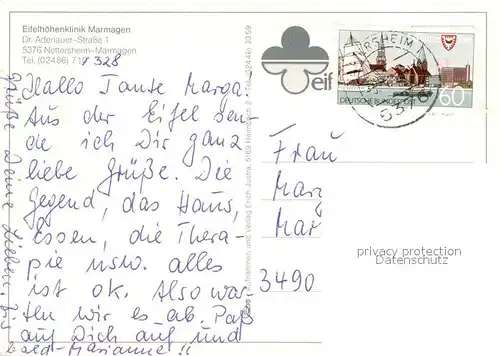 Eifelhöhenklinik Marmagen
Dr. Adenauer-Straße 1
5376 Nettersheim-Marmagen
Tel. (02486) 71/ 328
Hallo Tante Marga.
Aus der Eifel sen-
de ich Dir ganz
liebe Grüße. Die
Gegend, das Haus,
Essen, die Thera-
pie usw. alles
ist ok. Also war-
ten wir es ab. Paß
auf Dich auf und
Grüße Deine Lieben. Bis
bald - Marianne!!
und Verlag Erich Justra, 5169 Heimbach 2 • Tel. (02446) 3359
eif
ERSHEIM 1
DEUTSCHE BUNDESPOST
60
5376
Frau
Marg
Mar
3490
privacy protection
Datenschutz